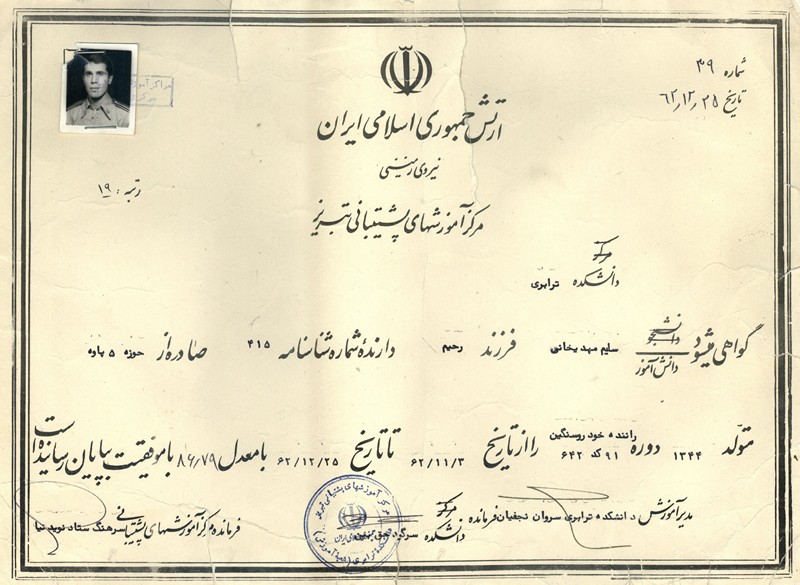 شماره ۳۹
تاریخ ۶۲٫۱۲٫۲۵
مراکز آموزش
مرکز
ارتش جمهوری اسلامی ایران
نیروی زمینی
رتبه : ۱۹
مرکز آموزشهای پشتیبانی تبریز
مرکز
دانشکده ترابری
گواهی میشود دانشجو سلیم مهدیخانی فرزند رحیم دارندهٔ شماره شناسنامه ۴۱۵ صادره از حوزه ۵ پاوه
دانش آموز
متولد ۱۳۴۴ دوره راننده خودروسنگین ۹۱ کد ۶۴۲ را از تاریخ ۶۲/۱۱/۳ تا تاریخ ۶۲/۱۲/۲۵ با معدل ۸۶٫۷۹ با موفقیت بپایان رسانیده است
مدیر آموزش دانشکده ترابری سروان نجفیان فرمانده مرکز دانشکده سرگرد فرمانده مرکز آموزشهای پشتیبانی سرهنگ ستاد نوید نیا
مرکز آموزشهای پشتیبانی تبریز